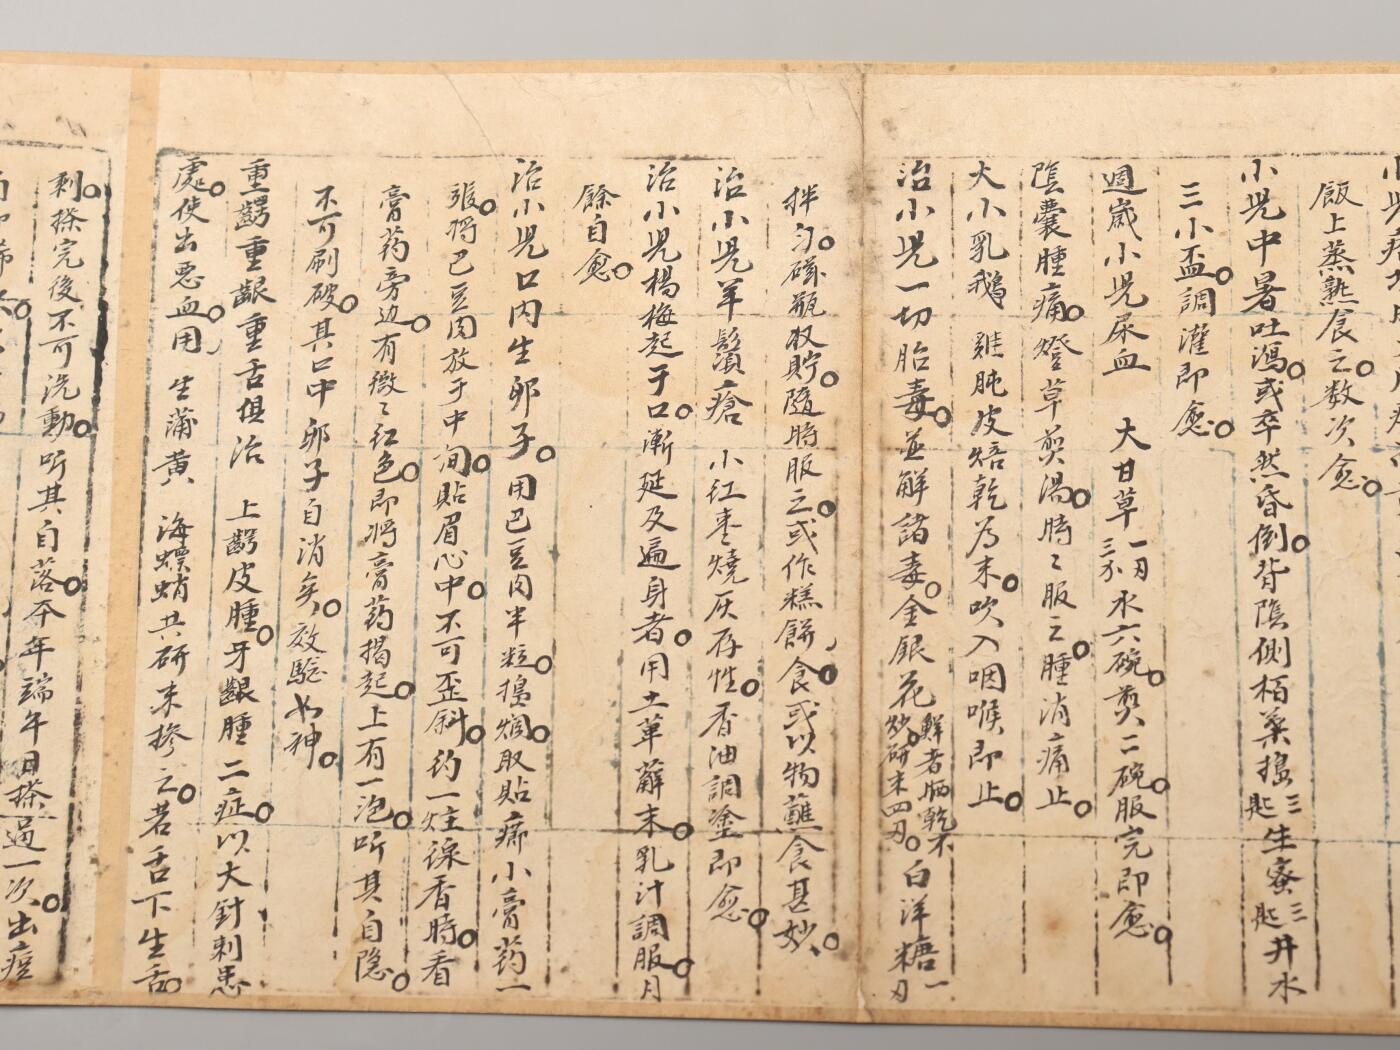 飯上蒸熟食之数次愈
小児中暑吐瀉或卒然昏倒背陰側栢葉搗三匙生蜜三匙井水
三小盃調灌即愈
週歲小児尿血 大甘草一刃三分水六碗煑二碗服完即愈
陰囊腫痛燈草煑湯時〻服之腫消痛止
大小乳鵝 雞肫皮焙乾為末吹入咽喉即止
治小児一切胎毒並觧諸毒金銀花鮮者晒乾不炒研末四刃白洋糖一刃
拌匀磁瓶収貯隨時服之或作糕餅食或以物蘸食甚妙
治小児羊鬚瘡 小红枣燒灰存性香油調塗即愈
治小児楊梅起于口漸延及遍身者用土草薢末乳汁調服月
餘自愈
治小児口内生卵子用巴豆肉半粒搗烱取貼㾿小膏药一
張将巴豆肉放于中间貼眉心中不可歪斜约一炷線香時看
膏药旁边有微〻红色即将膏药揭起上有一泡听其自隐
不可刷破其口中卵子自消矣效驗如神
重齶重齦重舌俱治 上齶皮腫牙齦腫二症以大針刺患
處使出惡血用 生蒲黄 海螵蛸共研末掺之若舌下生舌
剩搽完後不可洗動听其自落夲年端午日搽過一次出痘